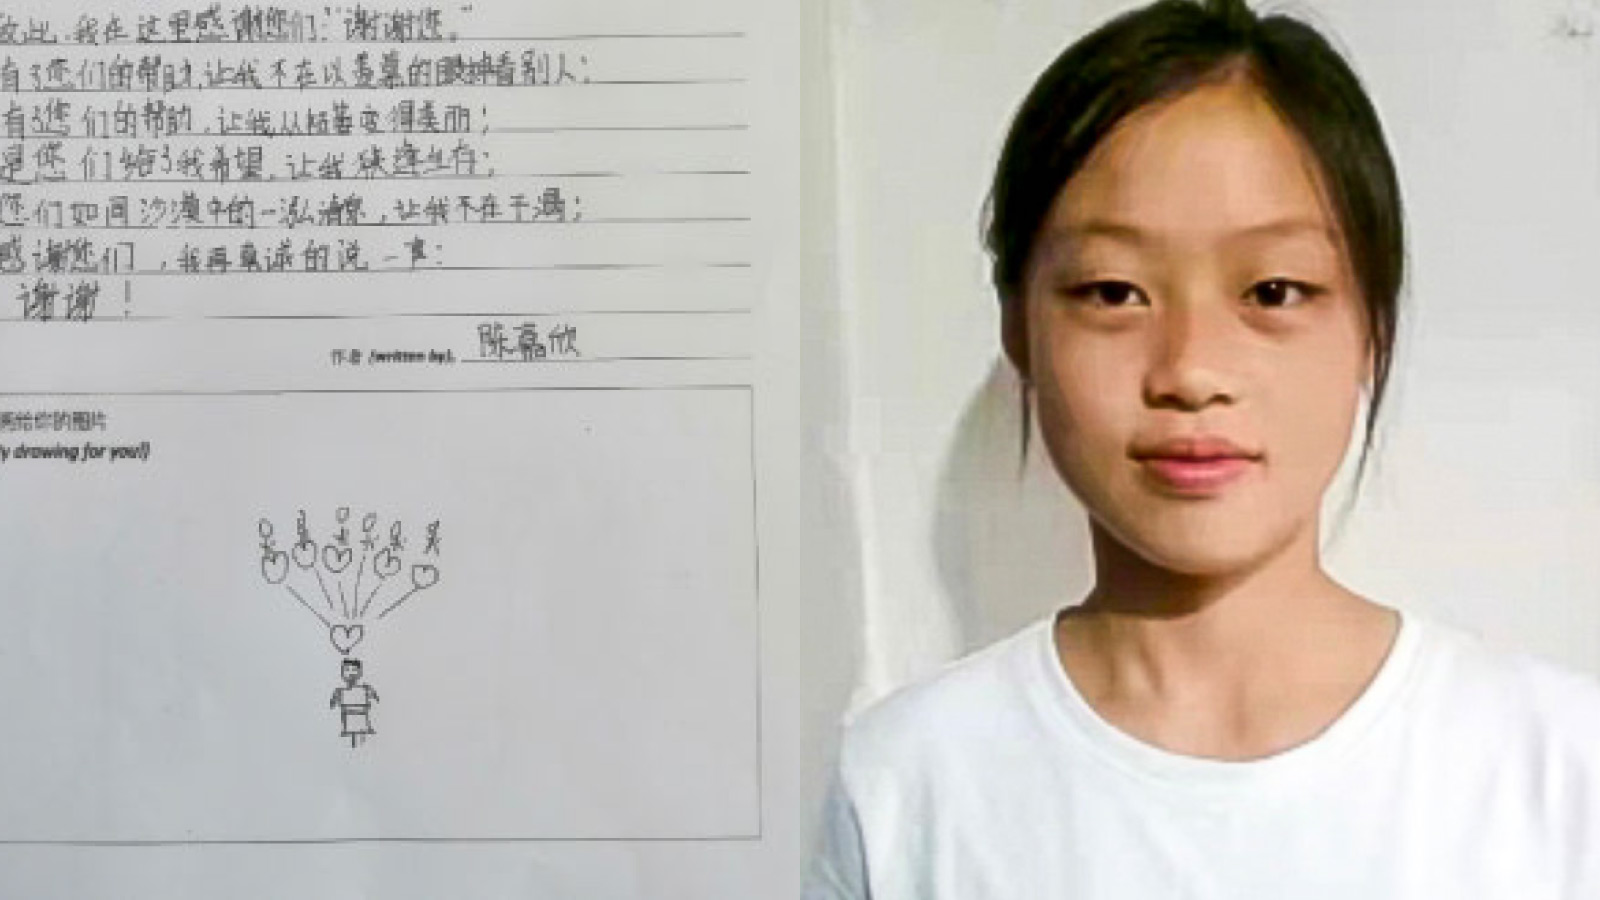 故此，我在这里感谢您们："谢谢您。"
有了您们的帮助，让我不在以羡慕的眼神看别人；
有了您们的帮助，让我从枯萎变得美丽；
是您们给了我希望，让我族逢生存；
您们如同沙漠中的一泓清泉，让我不在干渴；
感谢您们，我再真诚的说一声：
谢谢！
作者 (written by)： 陈嘉欣
画给你的图片
y drawing for you!)